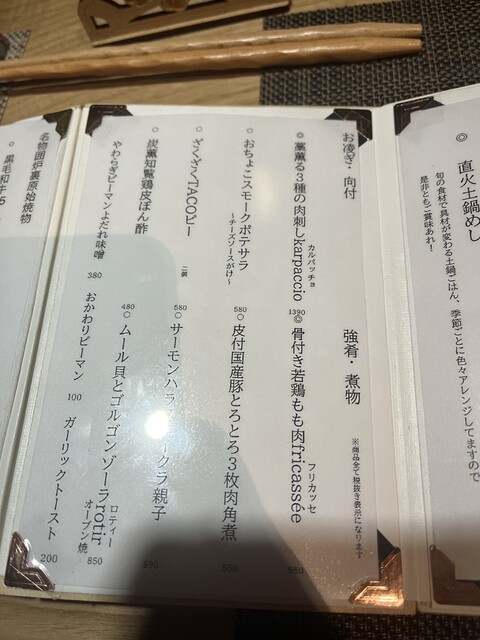 ◎ 直火土鍋めし
旬の食材で具材が変わる土鍋ごはん、季節ごとに色々アレンジしてますので
是非ともご賞味あれ！
お凌ぎ・向付
◎ 藁薫る3種の肉刺しkarpaccio カルパッチョ 1390
○ おちょこスモークポテサラ
～チーズソースがけ～ 580
○ ざくざくTACOピー 二個 580
○ 炭薫知覧鶏皮ぽん酢 480
やわらぎピーマンよだれ味噌 380
おかわりピーマン 100
強肴・煮物
※商品全て税抜き表示になります
◎ 骨付き若鶏もも肉fricassée フリカッセ
○ 皮付国産豚とろとろ3枚肉角煮
○ サーモンハラ イクラ親子 890
○ ムール貝とゴルゴンゾーラrotir ロティー
オーブン焼 850
ガーリックトースト 200
名物囲炉裏原始焼物
○ 黒毛和牛